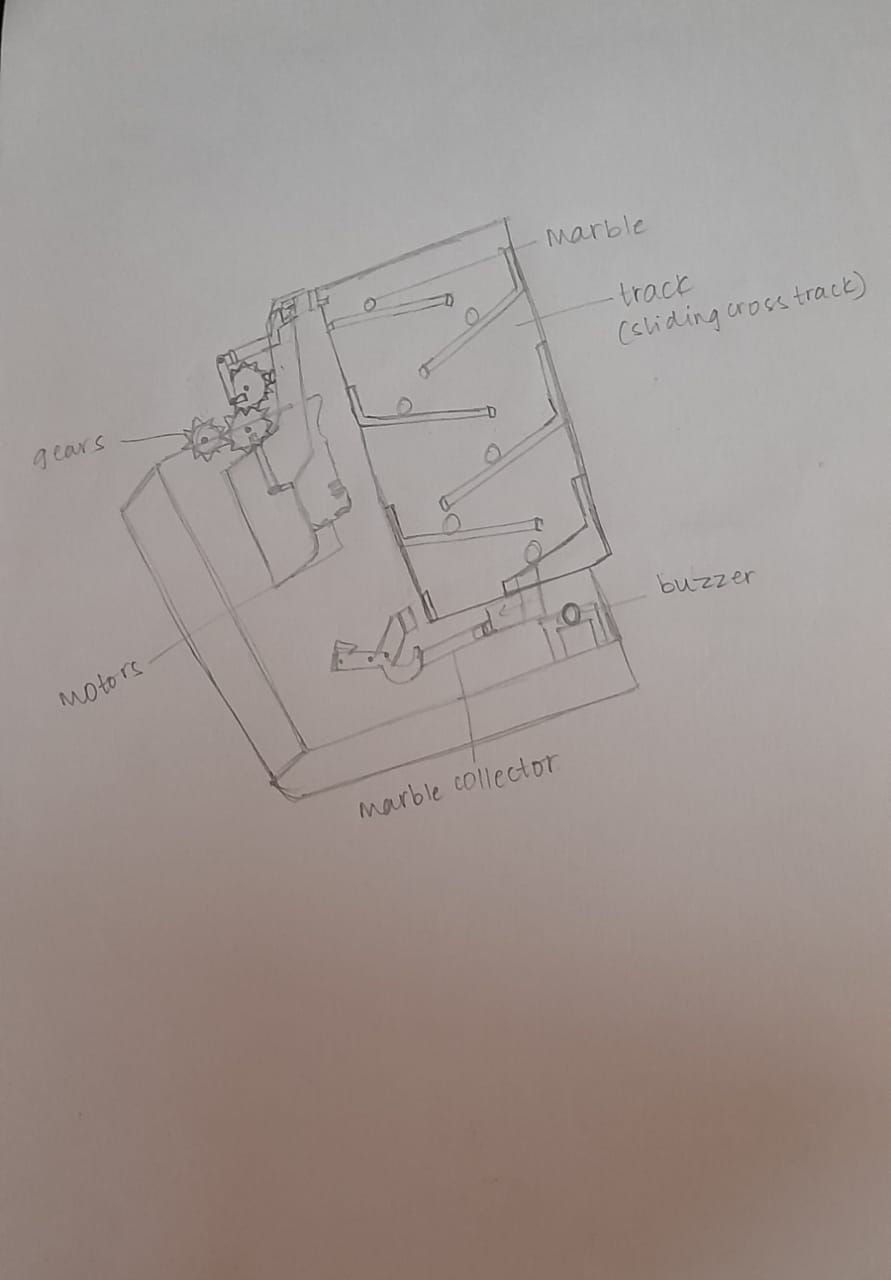 marble
track
(sliding cross track)
gears
buzzer
motors
marble collector